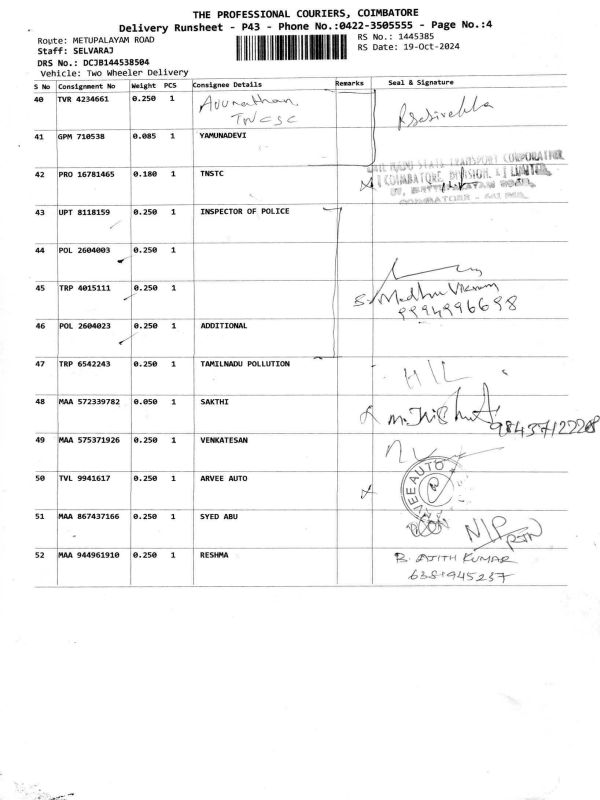 THE PROFESSIONAL COURIERS, COIMBATORE
Delivery Runsheet - P43 - Phone No.:0422-3505555 - Page No.:4
Route: METUPALAYAM ROAD RS No.: 1445385
Staff: SELVARAJ RS Date: 19-Oct-2024
DRS No.: DCJB144538504
Vehicle: Two Wheeler Delivery
S No Consignment No Weight PCS Consignee Details Remarks Seal & Signature
40 TVR 4234661 0.250 1
TNCSC
41 GPM 710538 0.085 1 YAMUNADEVI
42 PRO 16781465 0.180 1 TNSTC
STATE TRANSPORT CORPORATION
COIMBATORE DIVISION LIMITED
43 UPT 8118159 0.250 1 INSPECTOR OF POLICE
44 POL 2604003 0.250 1
45 TRP 4015111 0.250 1 S. Madhu Vikram
9994996698
46 POL 2604023 0.250 1 ADDITIONAL
47 TRP 6542243 0.250 1 TAMILNADU POLLUTION
48 MAA 572339782 0.050 1 SAKTHI
49 MAA 575371926 0.250 1 VENKATESAN
50 TVL 9941617 0.250 1 ARVEE AUTO
VEE AUTO
51 MAA 867437166 0.250 1 SYED ABU
N/P
RTN
52 MAA 944961910 0.250 1 RESHMA B. AJITH KUMAR